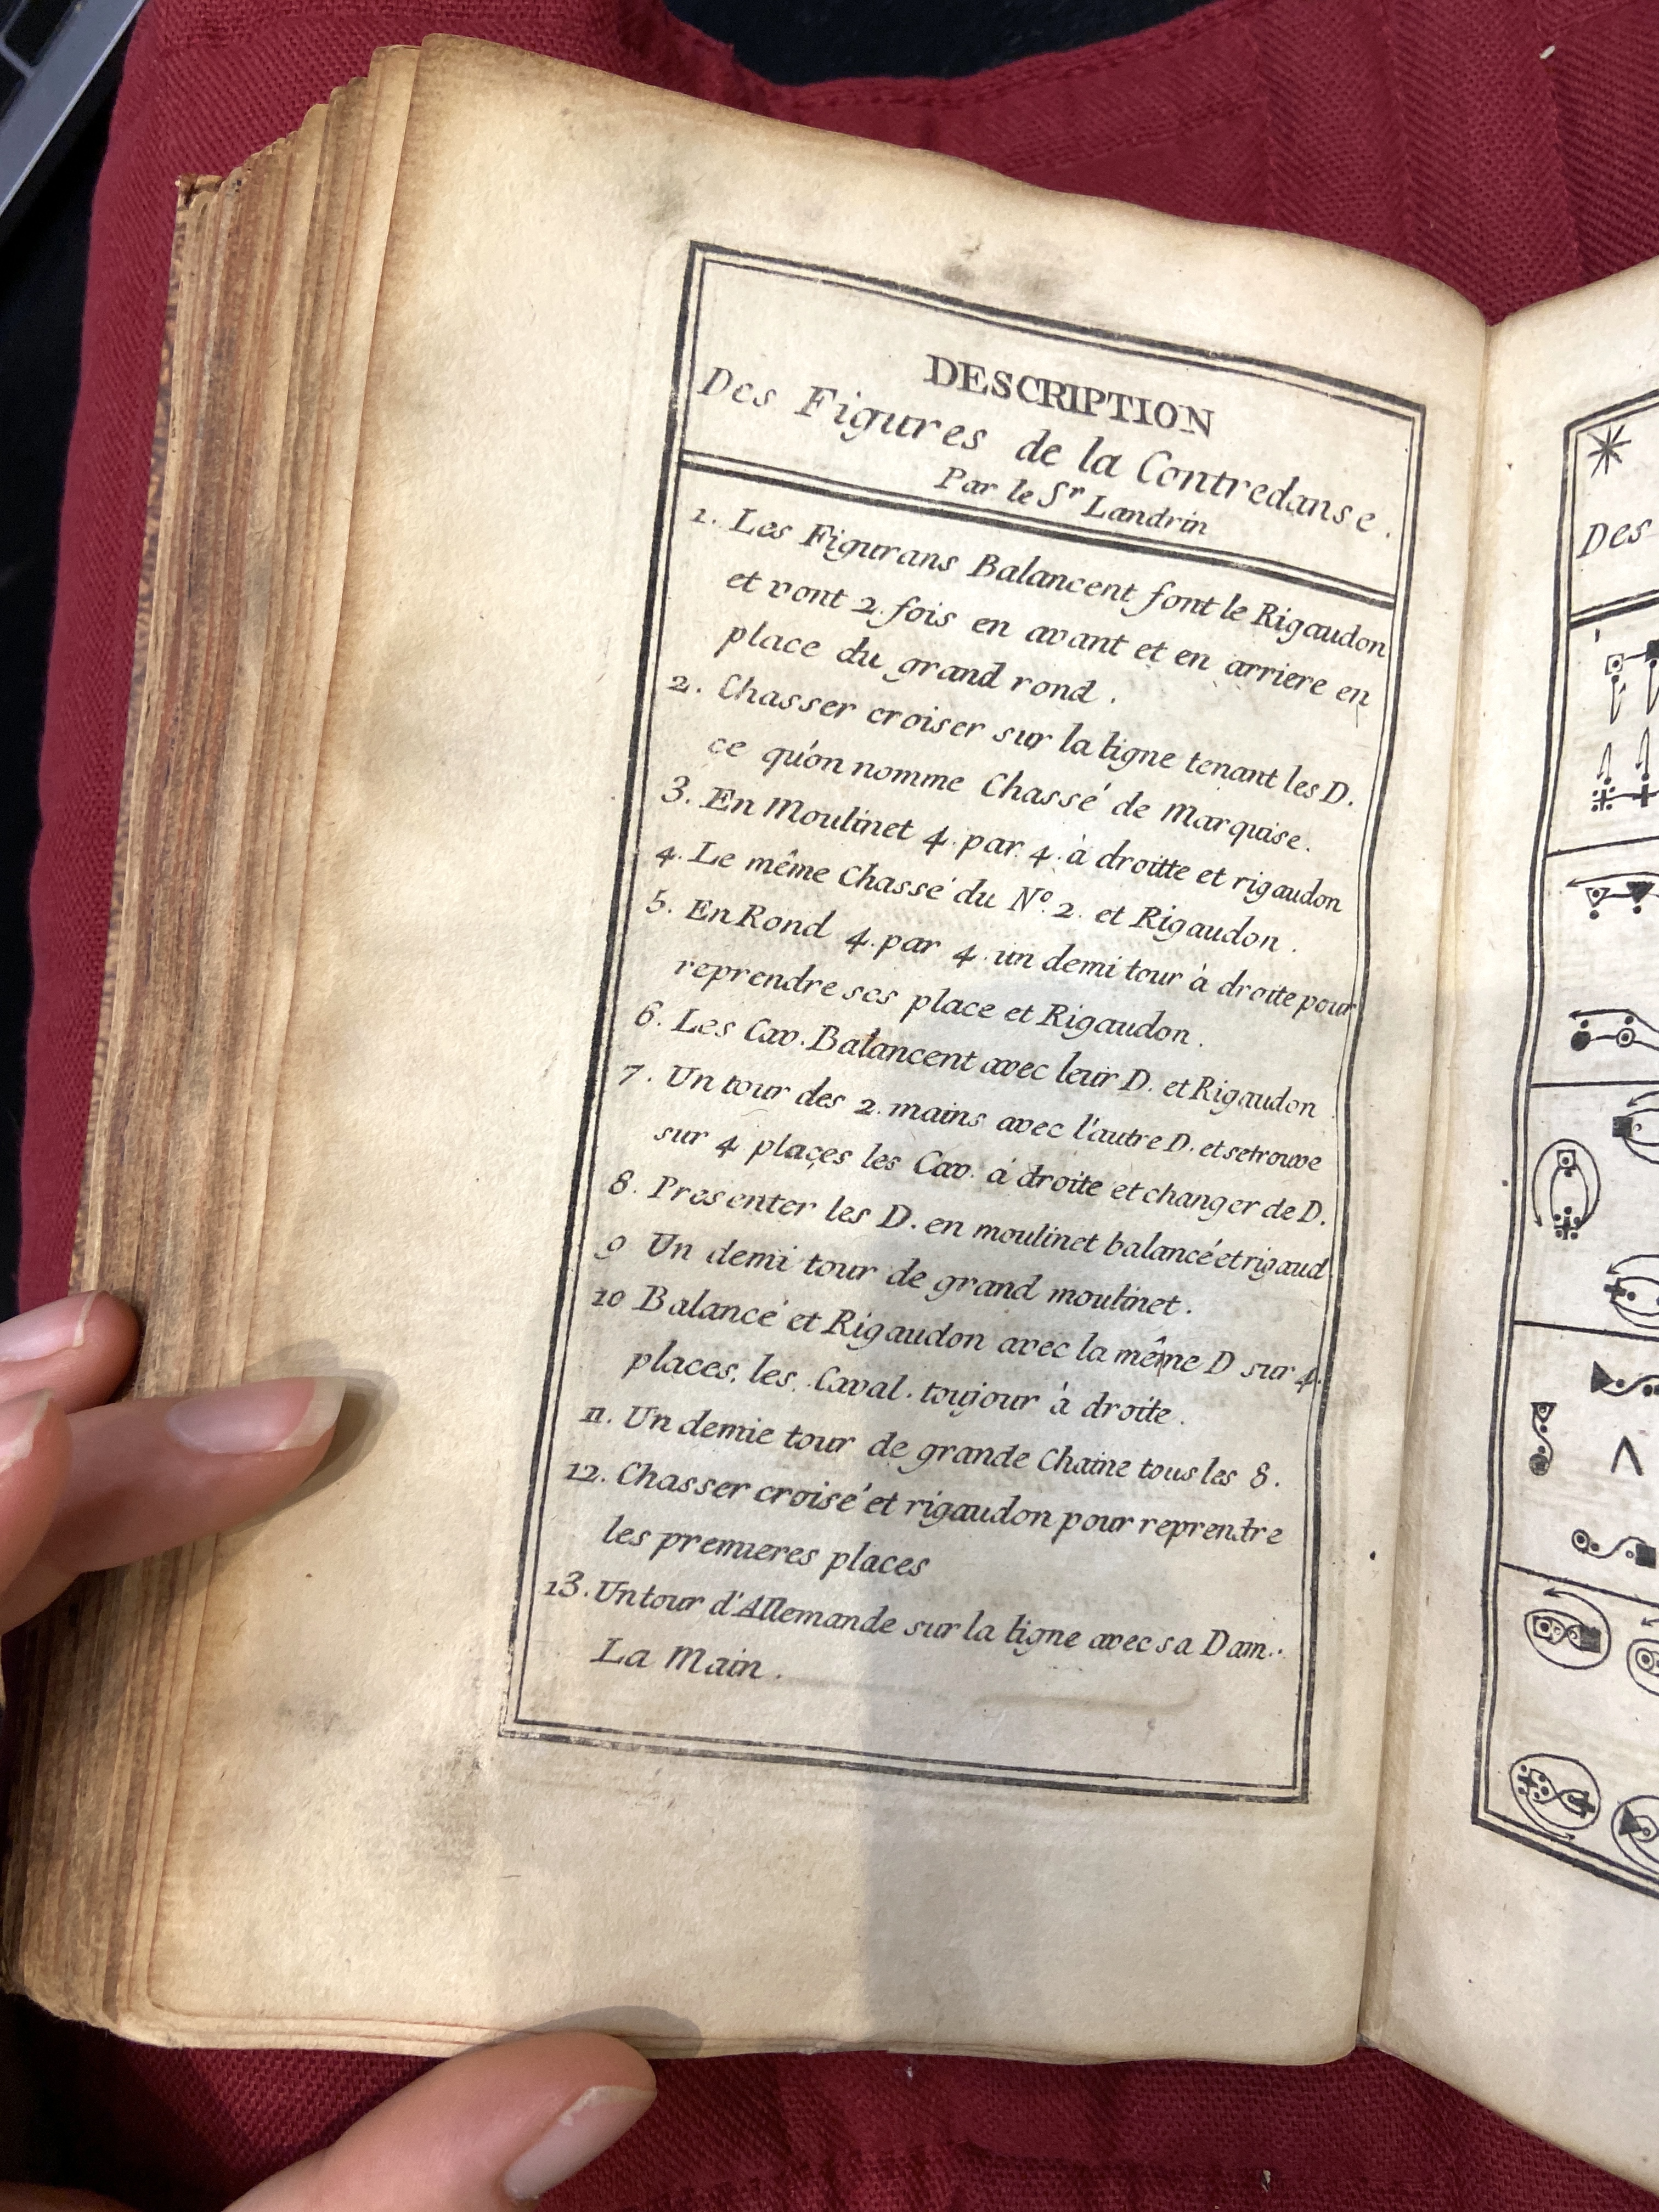 DESCRIPTION
Des Figures de la Contredanse.
Par le Sr Landrin
1. Les Figurans Balancent font le Rigaudon
et vont 2. fois en avant et en arriere en
place du grand rond.
2. Chasser croiser sur la ligne tenant les D.
ce qu'on nomme Chassé de Marquise.
3. En Moulinet 4. par. 4. à droitte et rigaudon
4. Le même Chassé du No. 2. et Rigaudon.
5. En Rond 4. par 4. un demi tour à droite pour
reprendre ses place et Rigaudon.
6. Les Cav. Balancent avec leur D. et Rigaudon.
7. Un tour des 2. mains avec l'autre D. et se trouve
sur 4 places les Cav. à droite et changer de D.
8. Presenter les D. en moulinet balancé et rigaud
9 Un demi tour de grand moulinet.
10 Balancé et Rigaudon avec la même D sur 4.
places. les. Caval. toujour à droite.
11. Un demie tour de grande Chaine tous les 8.
12. Chasser croisé et rigaudon pour reprendre
les premieres places
13. Un tour d'Allemande sur la ligne avec sa Dam.
La Main.
Des